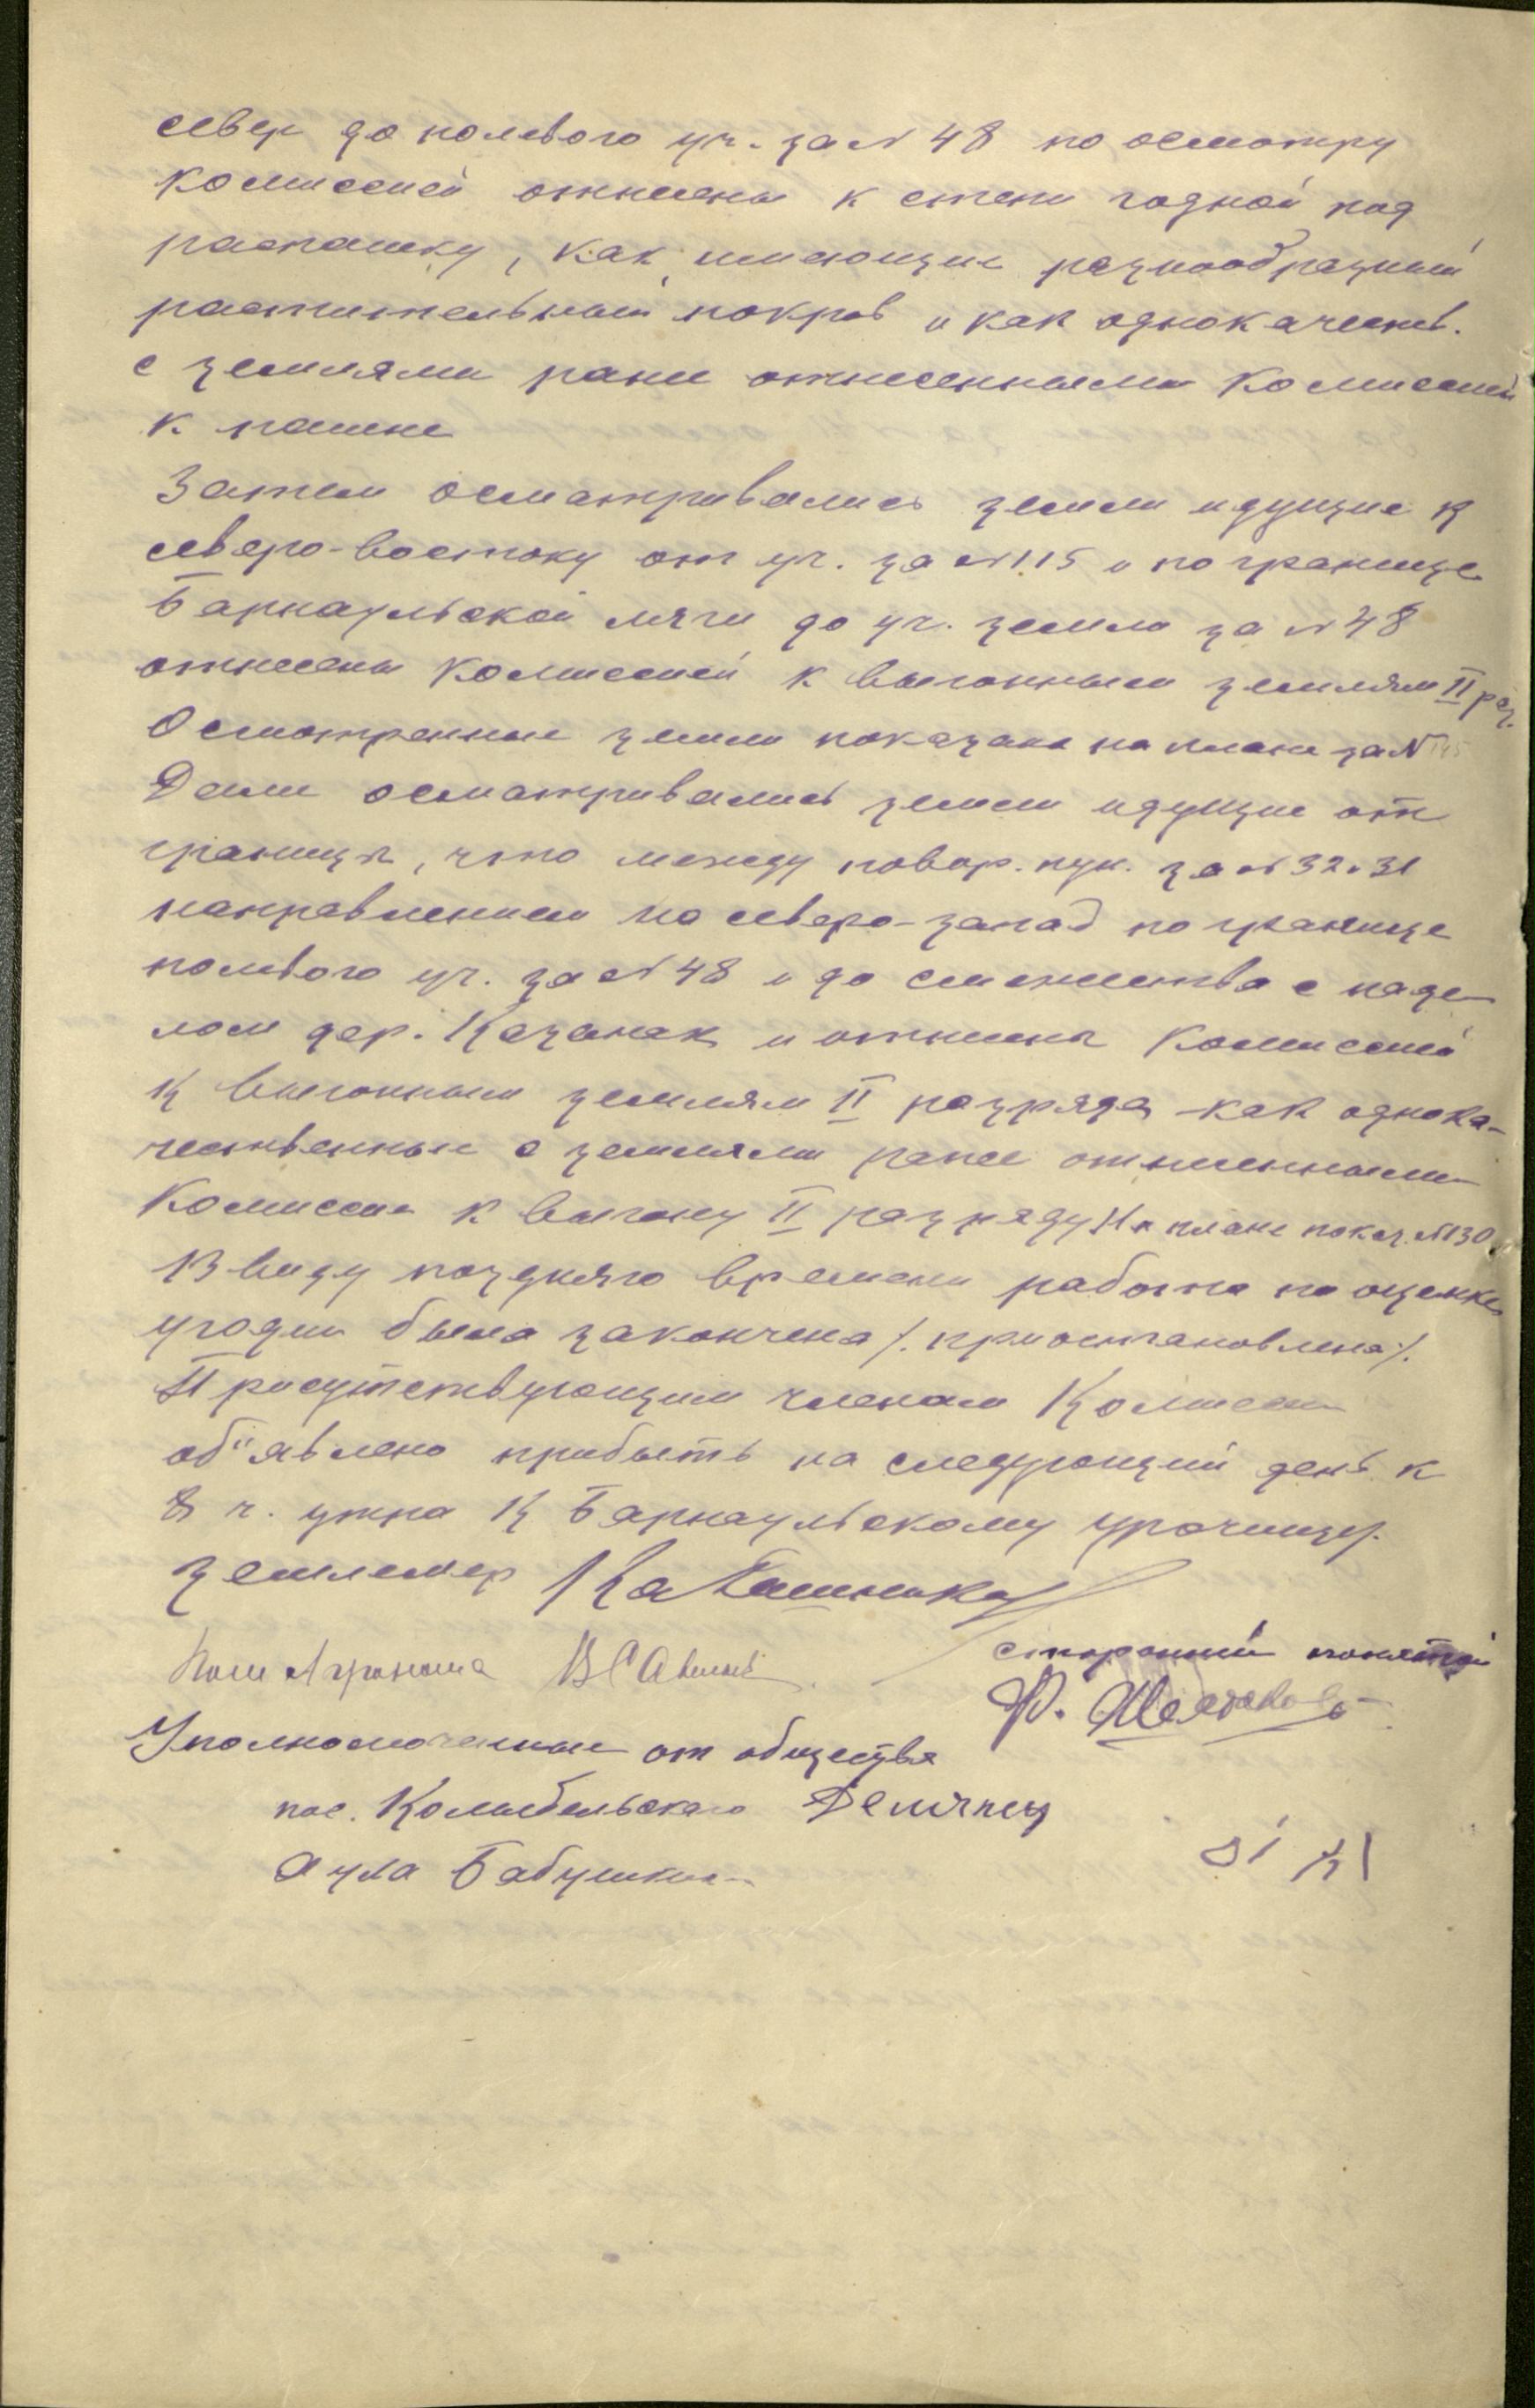 север до полевого уч. за № 48 по осмотру
комиссией отнесены к степи годной под
распашку, как имеющие разнообразный
растительный покров и как однокачеств.
с землями ране отнесенными Комиссией
к пашне
Затем осматривались земли идущие к
северо-востоку от уч. за № 115 и по границе
Барнаульской мяги до уч. земли за № 48
отнесены Комиссией к выгонным землям II раз.
Осмотренные земли показаны на плане за №
Дале осматривались земли идущие от
границы, что между повор. пун. за № 32 и 31
направлением на северо-запад по границе
полевого уч. за № 48 и до смежества с наде-
лом дер. Казанак и отнесены Комиссией
к выгонным землям II разряда как однока-
чественные с землями ранее отнесенными
Комиссии к выгону II разряду На плане показ. № 130
В виду позднего времени работа по оценке
угодий была закончена /. приостановлена /.
Присутствующим членам Комиссии
об"явлено прибыть на следующий день к
8 ч. утра к Барнаульскому урочищу.
землемер
Пом Агронома
сторонний понятой
Ф.
Уполномоченные от общества
пос. Колыбельскаго
Аула Бабушкин